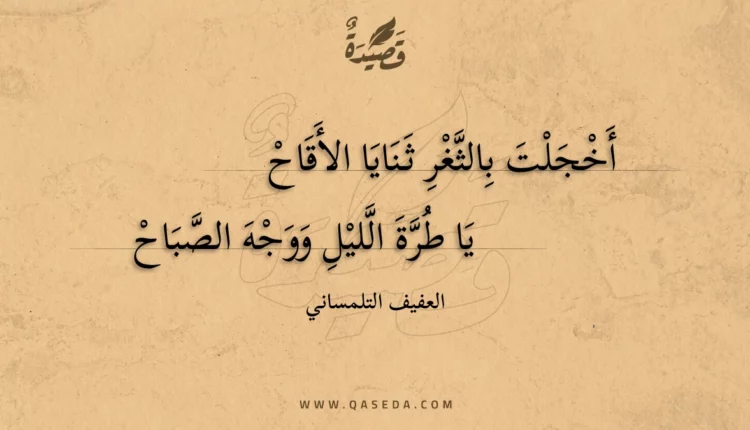 قَصِيْدَةٌ
أَخْجَلْتَ بِالثَّغْرِ ثَنَايَا الأَقَاحْ
يَا طُرَّةَ الَّليْلِ وَوَجْهَ الصَّبَاحْ
العفيف التلمساني
WWW.QASEDA.COM